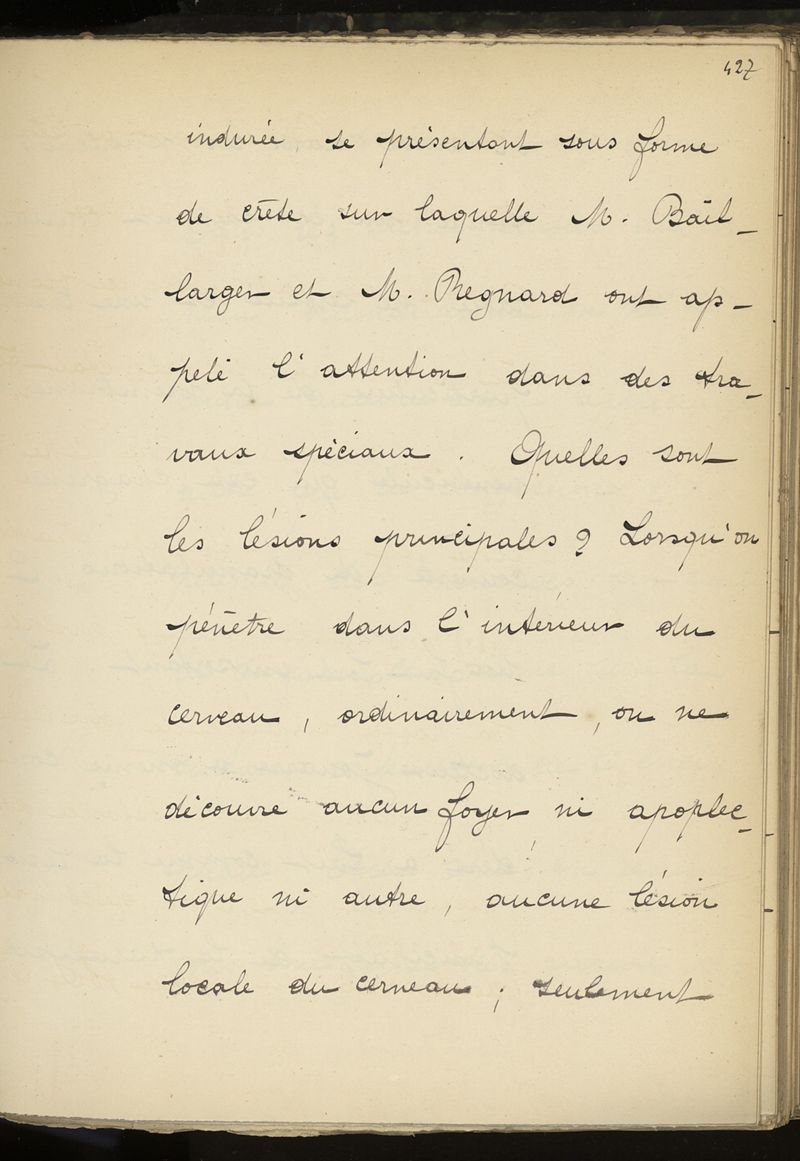 427
indurée, se présentant sous forme
de crête sur laquelle M. Bail-
larger et M. Regnard ont ap-
pelé l'attention dans des tra-
vaux spéciaux. Quelles sont
les lésions principales ? Lorsqu'on
pénètre dans l'intérieur du
cerveau, ordinairement, on ne
découvre aucun foyer ni apoplec-
tique ni autre, aucune lésion
locale du cerveau ; seulement